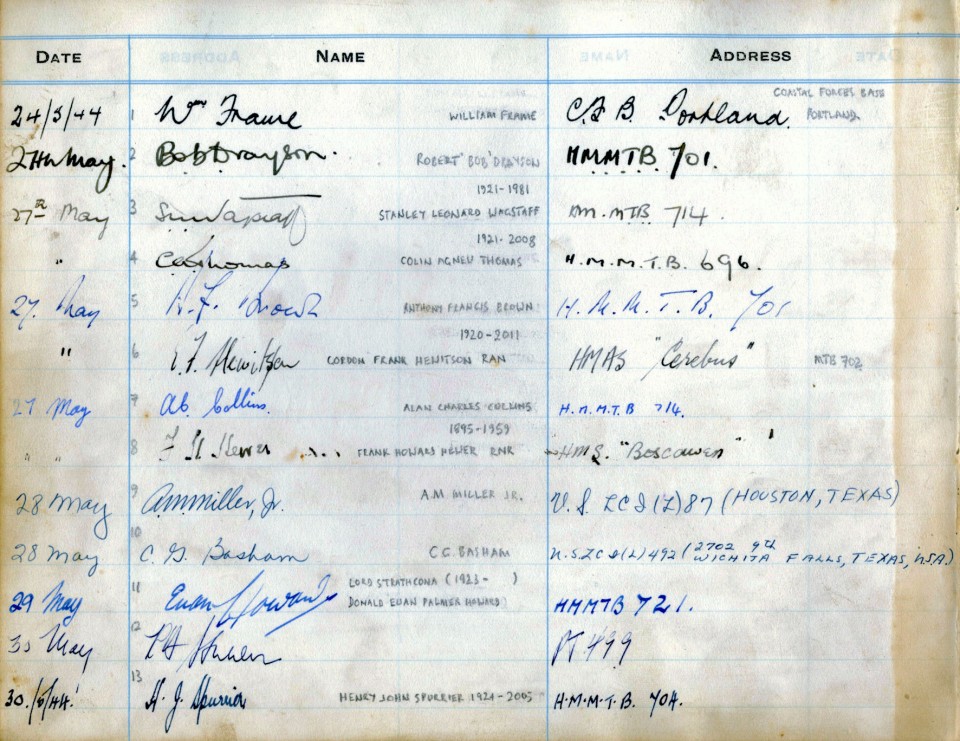 DATE NAME ADDRESS
COASTAL FORCES BASE
24/5/44 1 Wm Frame WILLIAM FRAME C.F.B. Portland. PORTLAND.
27th May. 2 Bob Drayson. ROBERT 'BOB' DRAYSON HMMTB 701.
1921-1981
27th May 3 STANLEY LEONARD WAGSTAFF HM.MTB 714.
1921-2008
" 4 C A Thomas COLIN AGNEU THOMAS H.M.M.T.B. 696.
27. May 5 A. F. Brown ANTHONY FRANCIS BROWN H.M.M.T.B. 701
1920-2011
" 6 G. F. Hewitson GORDON FRANK HEWITSON RAN HMAS "Cerebus" MTB 702
27 May 7 A C. Collins. ALAN CHARLES COLLINS H.M.M.T.B 714.
1895-1959
" " 8 F H Hewer FRANK HOWARD HEWER RNR HMS. "Boscawen"
28 May 9 A.M. Miller, Jr. A.M. MILLER JR. U.S. LCI(L)87 (HOUSTON, TEXAS)
28 May 10 C. G. Basham C.G. BASHAM U.S. LCI(L)492 (2702 9th WICHITA FALLS, TEXAS, USA.)
11 LORD STRATHCONA (1923- )
29 May Euan Howard DONALD EUAN PALMER HOWARD HMMTB 721.
30 May 12 PT 499
13
30./5/44. H. J. Spurrier HENRY JOHN SPURRIER 1921-2005 H.M.M.T.B. 704.